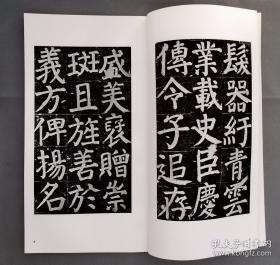 器紆青雲
業載史臣慶
傳令子追存
盛美褒贈崇
斑且旌善於
義方俾揚名
孔夫子旧书网